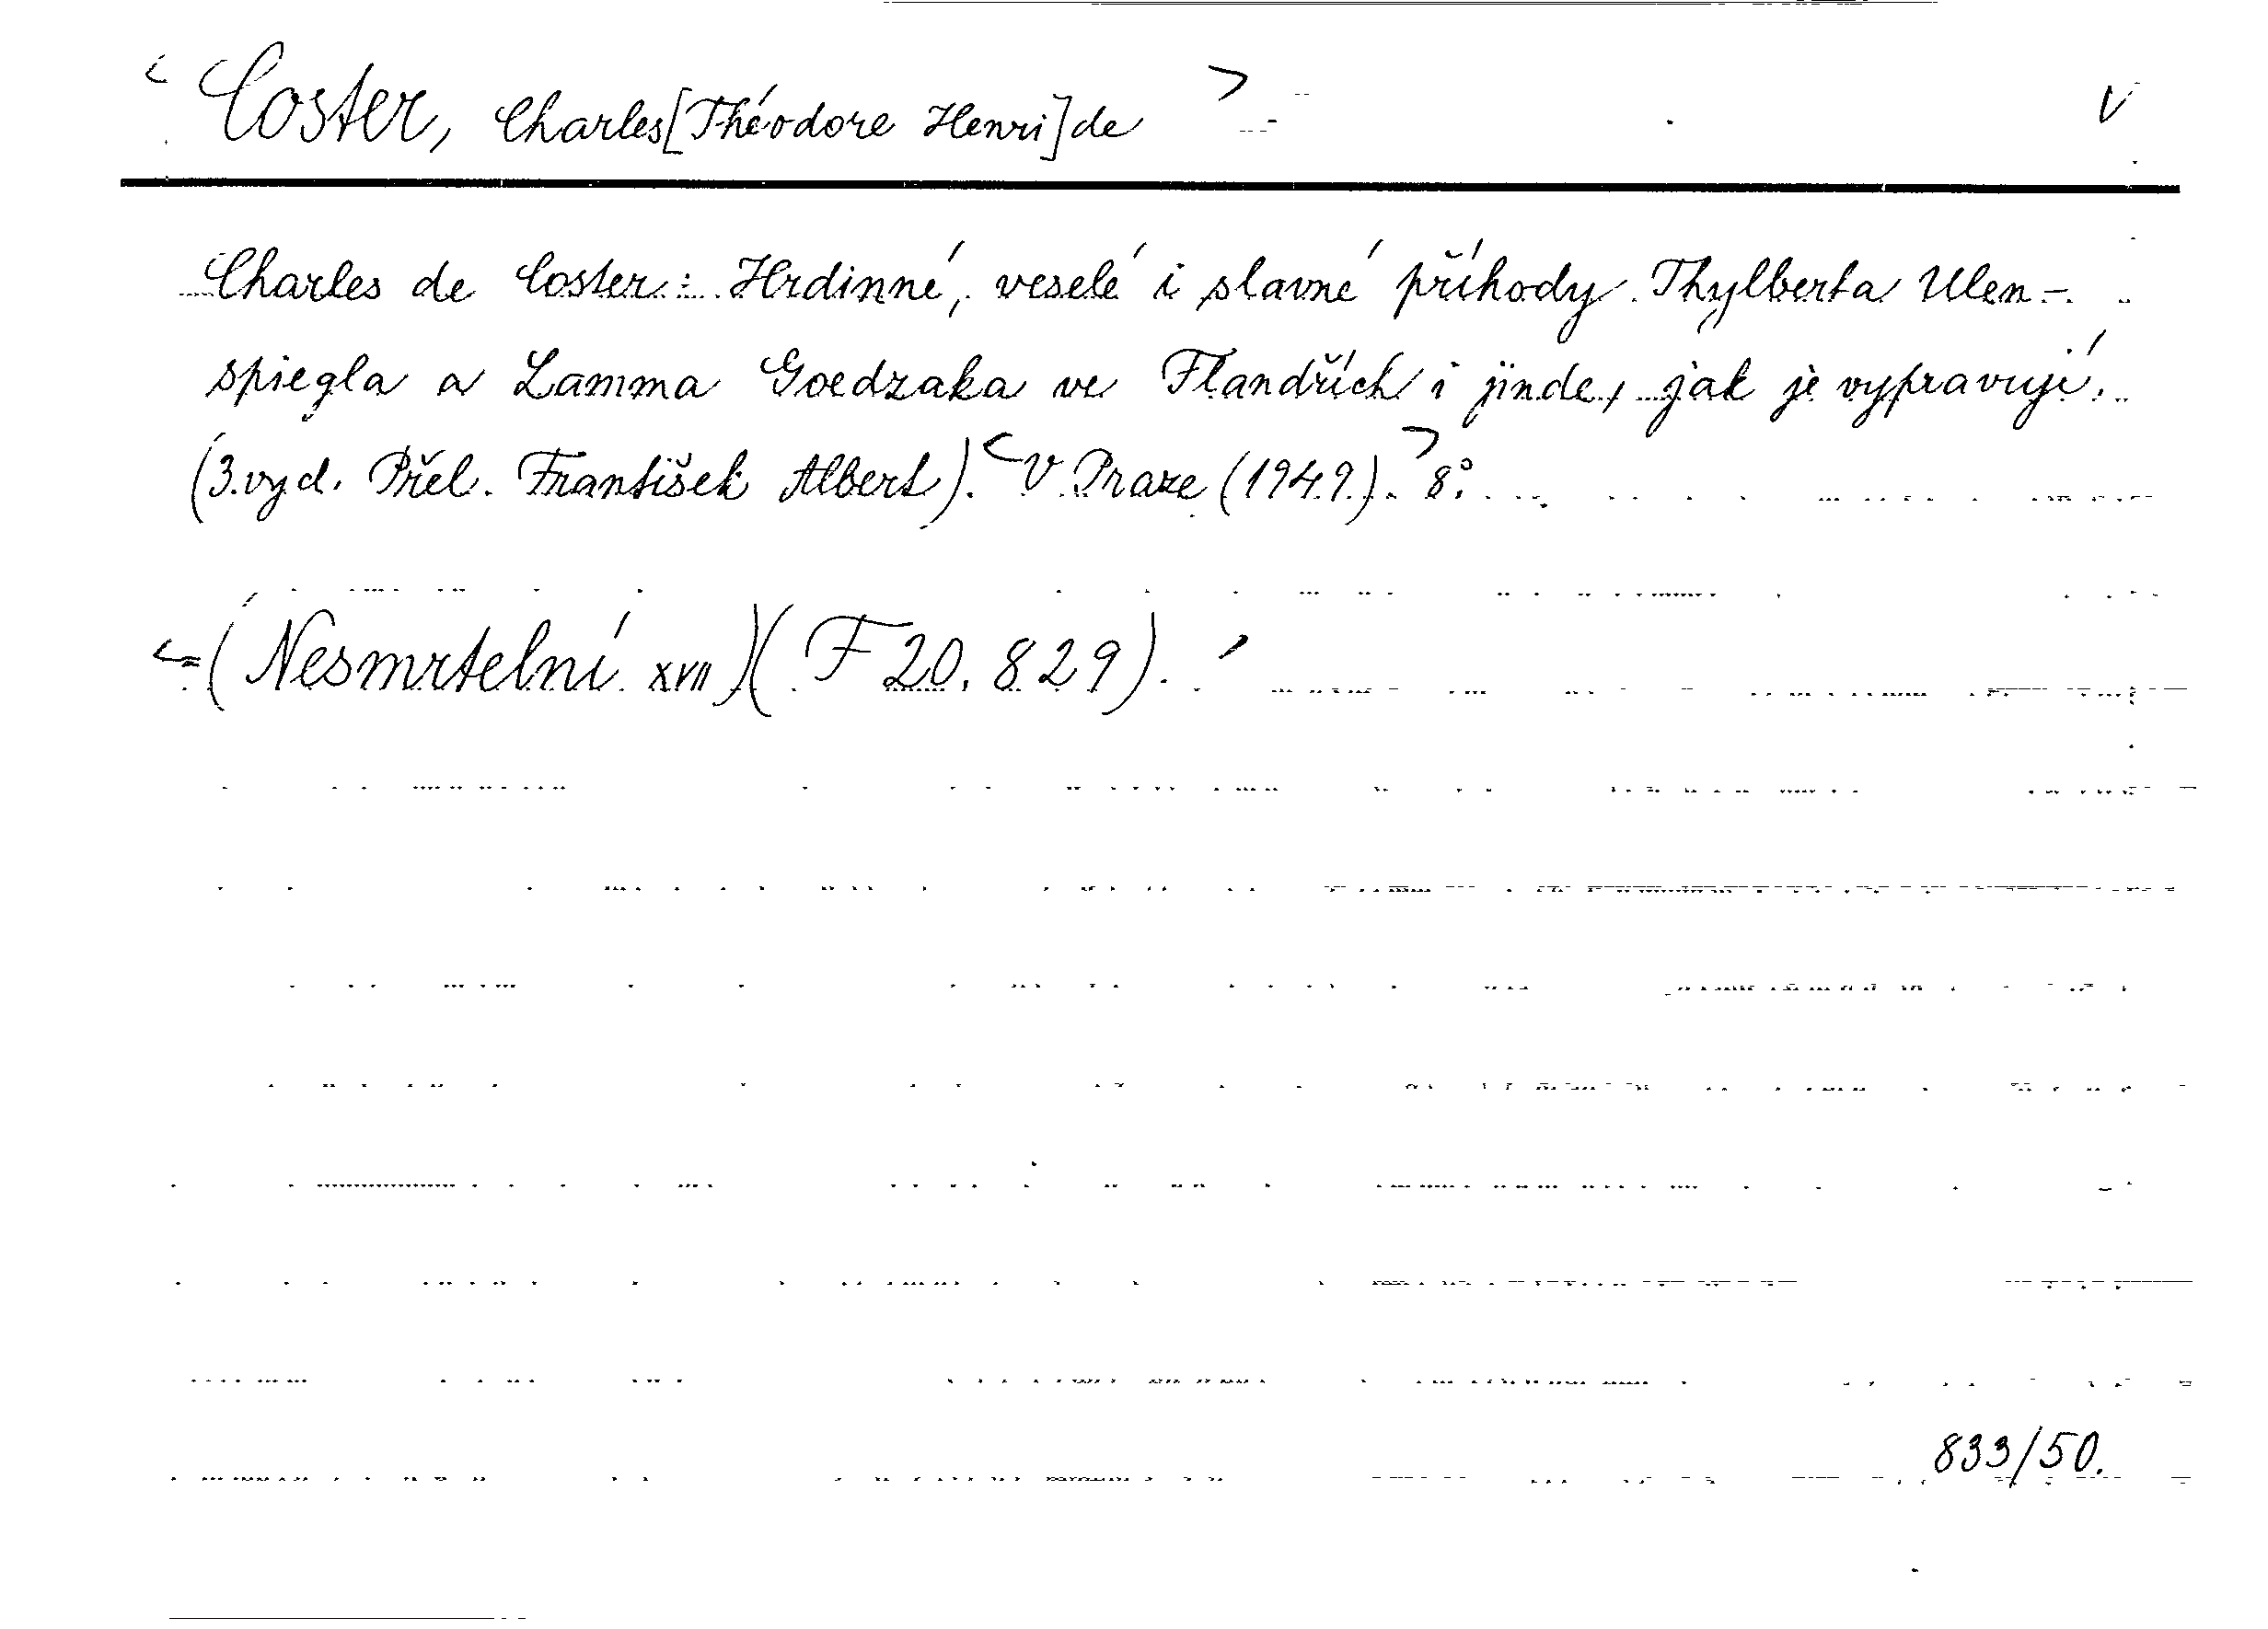 < Coster, Charles [Théodore Henri] de > V
Charles de Coster: Hrdinné, veselé i slavné příhody Thylberta Ulen-
spiegla a Lamma Goedzaka ve Flandřích i jinde, jak je vypravují.
(3. vyd. Přel. František Albert). < V Praze (1949). > 8°.
< = (Nesmrtelní XVII) (F 20.829). >
833/50.